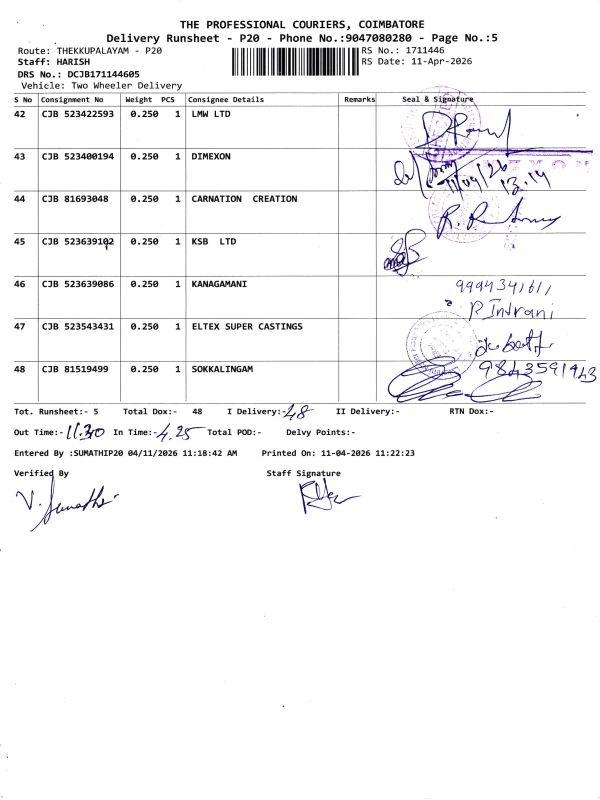 THE PROFESSIONAL COURIERS, COIMBATORE
Delivery Runsheet - P20 - Phone No.:9047080280 - Page No.:5
Route: THEKKUPALAYAM - P20
RS No.: 1711446
Staff: HARISH
RS Date: 11-Apr-2026
DRS No.: DCJB171144605
Vehicle: Two Wheeler Delivery
S No Consignment No Weight PCS Consignee Details Remarks Seal & Signature
42 CJB 523422593 0.250 1 LMW LTD
43 CJB 523400194 0.250 1 DIMEXON
11/04/26
13.14
44 CJB 81693048 0.250 1 CARNATION CREATION
45 CJB 523639102 0.250 1 KSB LTD
46 CJB 523639086 0.250 1 KANAGAMANI
P Indrani
47 CJB 523543431 0.250 1 ELTEX SUPER CASTINGS
48 CJB 81519499 0.250 1 SOKKALINGAM
9843591943
Tot. Runsheet:- 5 Total Dox:- 48 I Delivery:- 48 II Delivery:- RTN Dox:-
Out Time:- 11.30 In Time:- 4.25 Total POD:- Delvy Points:-
Entered By :SUMATHIP20 04/11/2026 11:18:42 AM Printed On: 11-04-2026 11:22:23
Verified By Staff Signature
V. Sumathi